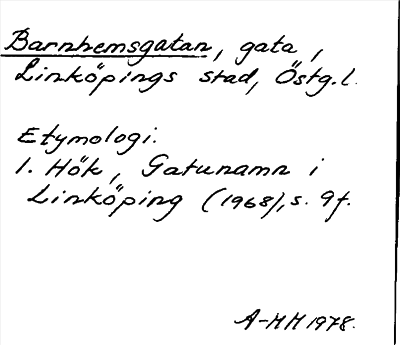 Barnhemsgatan, gata,
Linköpings stad, Östg.l.
Etymologi.
I. Hök, Gatunamn i
Linköping (1968), s. 9f.
A-HH 1978.